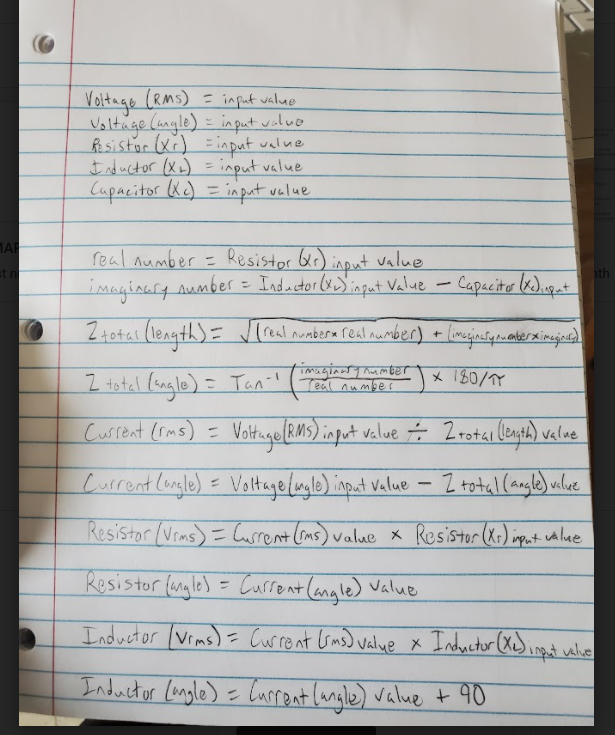 Voltage (RMS) = input value
Voltage (angle) = input value
Resistor (Xr) = input value
Inductor (XL) = input value
Capacitor (Xc) = input value
real number = Resistor (Xr) input value
imaginary number = Inductor (XL) input value - Capacitor (Xc) input
Z total (length) = √(real number x real number) + (imaginary number x imaginary)
Z total (angle) = Tan⁻¹ (imaginary number / real number) x 180/π
Current (rms) = Voltage (RMS) input value ÷ Z total (length) value
Current (angle) = Voltage (angle) input value - Z total (angle) value
Resistor (Vrms) = Current (rms) value x Resistor (Xr) input value
Resistor (angle) = Current (angle) value
Inductor (Vrms) = Current (rms) value x Inductor (XL) input value
Inductor (angle) = Current (angle) value + 90